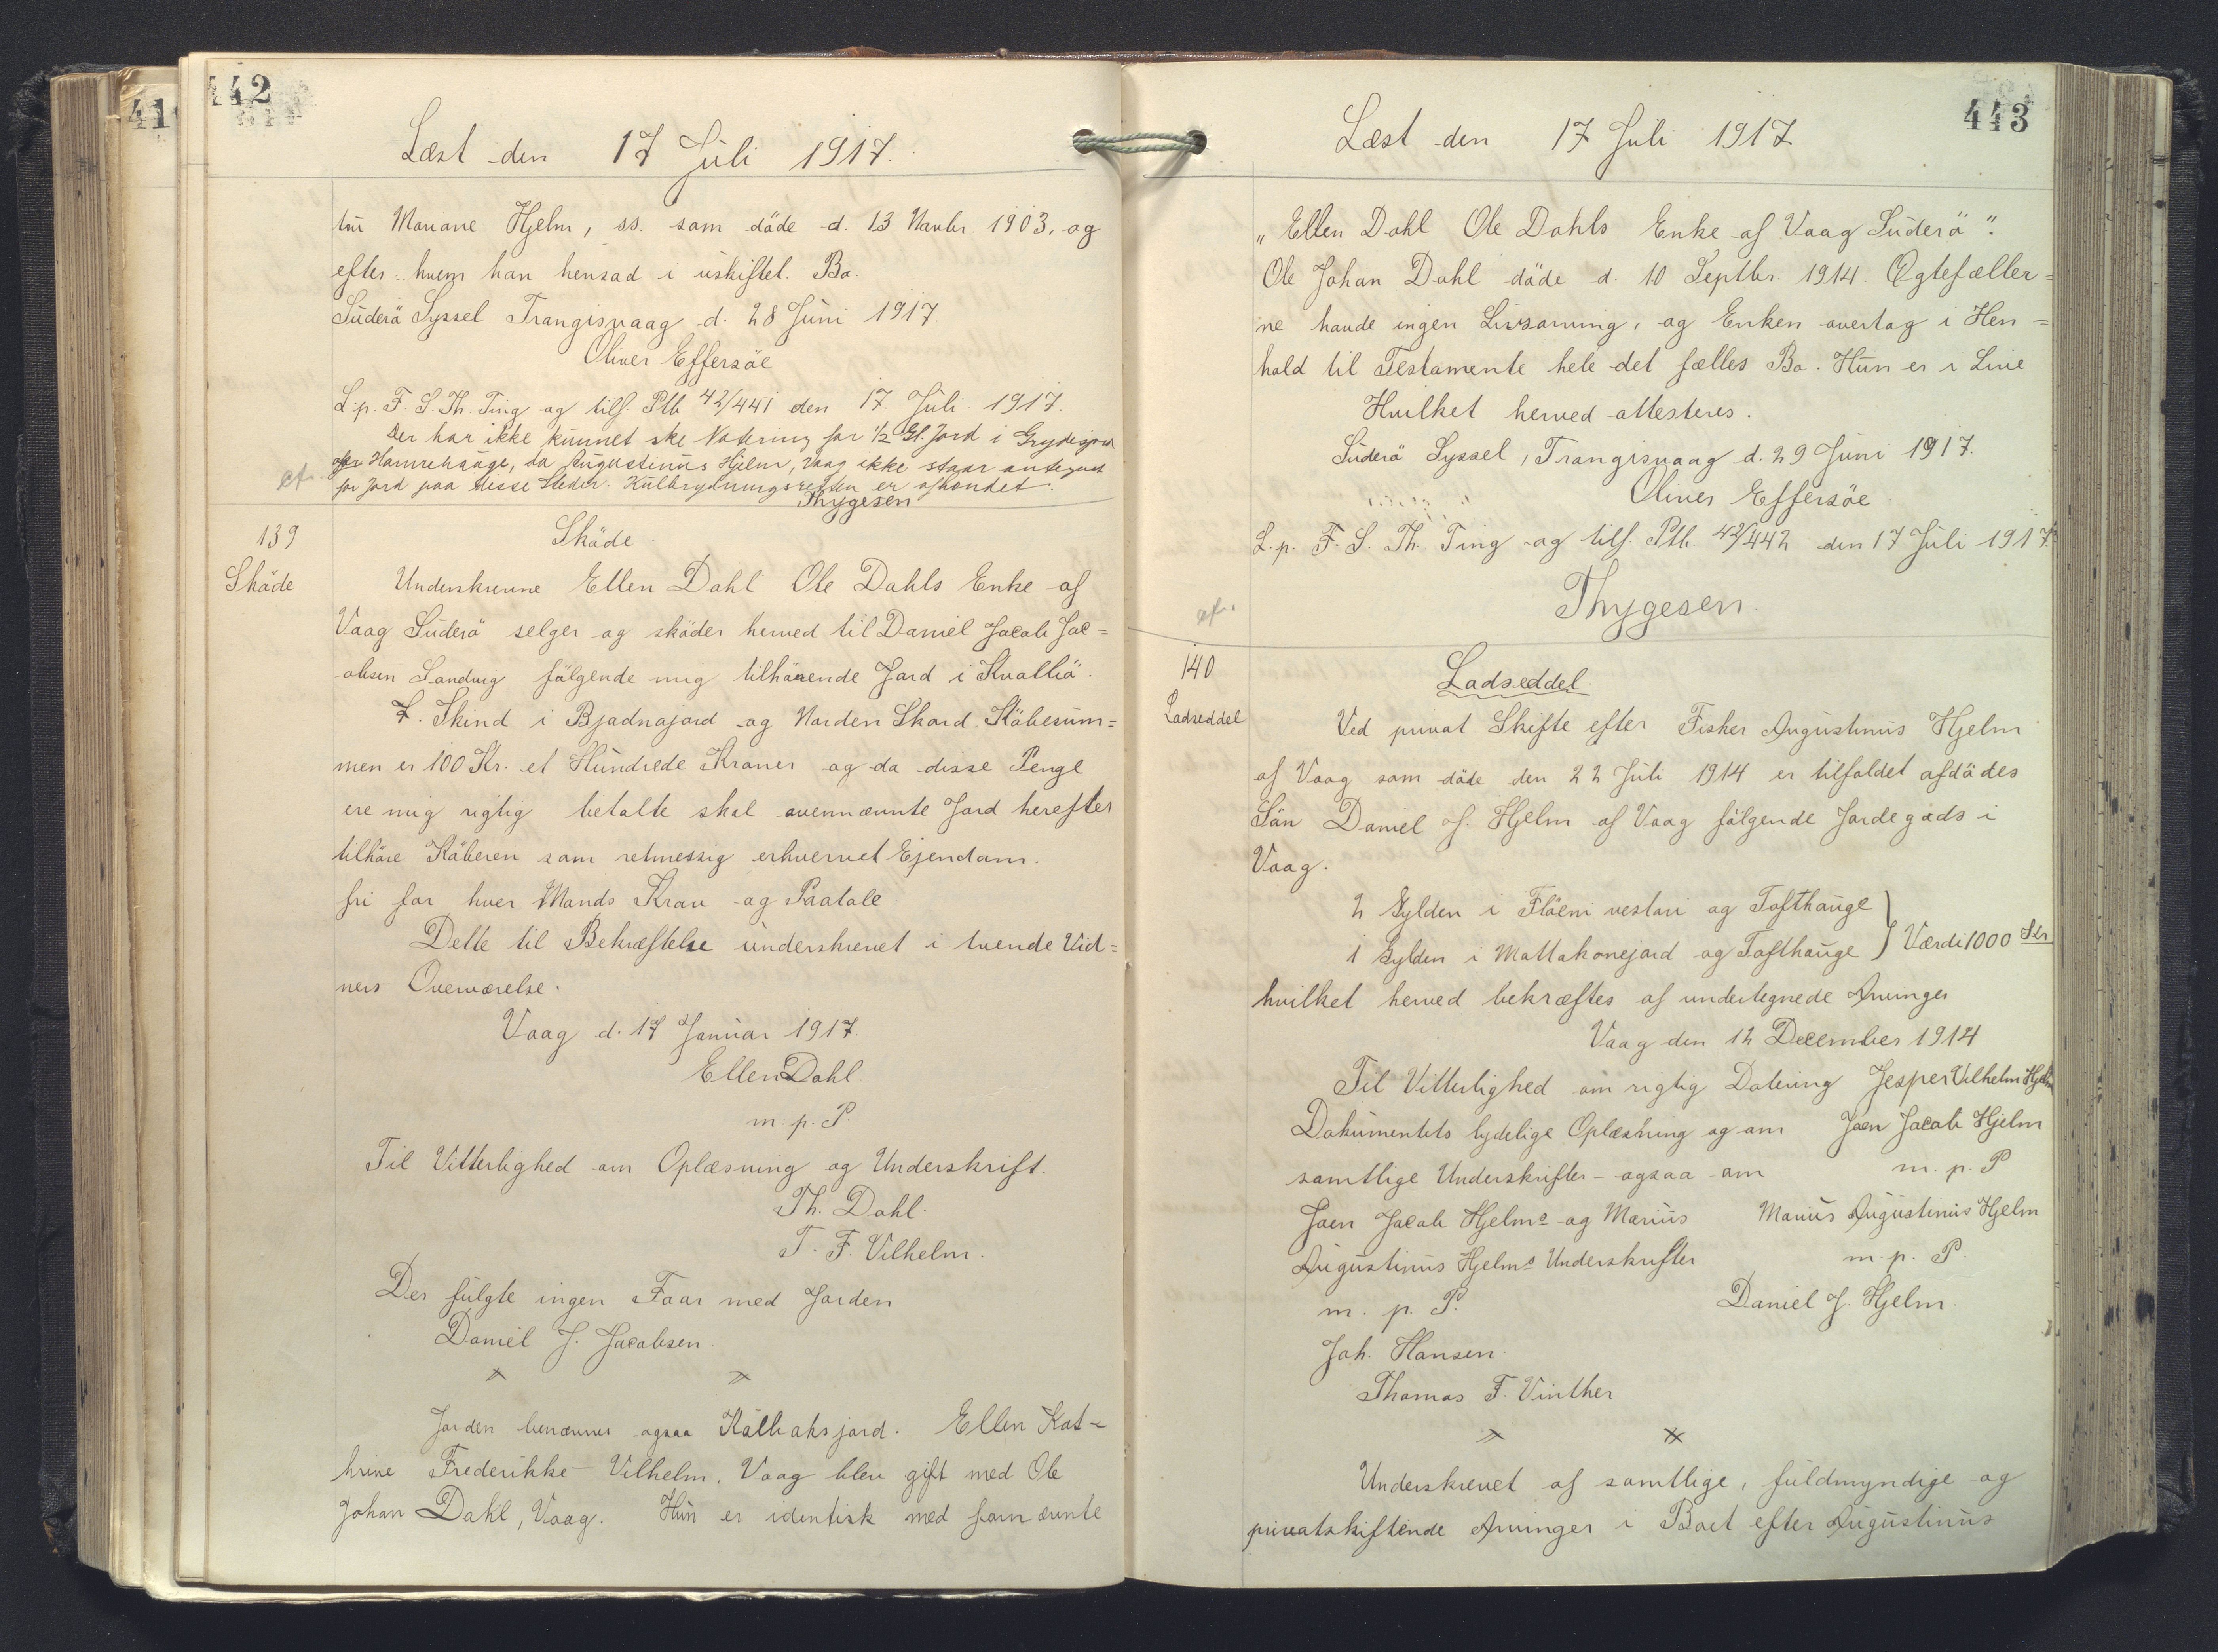 442
Læst den 17 Juli 1917.
tru Mariane Hjelm, ss. som döde d. 13 Novbr 1903, og
efter hvem han hensad i uskiftet Bo.
Suderö Syssel Trangisvaag d. 28 Juni 1917.
Oliver Effersöe
L. p. F. S. Th. Ting og tilf. Ptb 42/441 den 17. Juli 1917.
Der har ikke kunnet ske Notering for 1/2 Gl. Jord i
Hamrehauge, da Augustinus Hjelm, Vaag ikke staar antegnet
for Jord paa disse Steder. Kulbrydningsretten er afhændet.
Thygesen
139
Sköde
Sköde.
Underskrevne Ellen Dahl Ole Dahls Enke af
Vaag Suderö selger og sköder herved til Daniel Jacob Jac=
obsen Sandvig fölgende mig tilhörende Jord i Kvalbö.
7. Skind i Bjadnajord og Norden Skard Köbesum=
men er 100 Kr. et Hundrede Kroner og da disse Penge
ere mig rigtig betalte skal ovennævnte Jord herefter
tilhöre Köberen som retmessig erhvervet Ejendom.
fri for hver Mands Krav og Paatale
Dette til Bekræftelse underskrevet i tvende Vid=
ners Overværelse.
Vaag d. 17 Januar 1917.
Ellen Dahl.
m. p. P.
Til Vitterlighed om Oplæsning og Underskrift.
Th. Dahl.
T. F. Vilhelm.
Der fulgte ingen Faar med Jorden
Daniel J. Jacobsen.
Jorden benævnes ogsaa Kalbaksjord. Ellen Kat=
hrine Frederikke Vilhelm, Vaag blev gift med Ole
Johan Dahl, Vaag. Hun er identisk med fornævnte
443
Læst den 17 Juli 1917
"Ellen Dahl Ole Dahls Enke af Vaag Suderö".
Ole Johan Dahl döde d. 10 Septbr. 1914. Ægtefæller=
ne havde ingen Livsarving, og Enken overtog i Hen=
hold til Testamente hele det fælles Bo. Hun er i Live
Hvilket herved attesteres.
Suderö Syssel, Trangisvaag d. 29 Juni 1917.
Oliver Effersöe
L. p. F. S. Th. Ting og tilf. Ptb. 42/442 den 17 Juli 1917
Thygesen.
140
Lodseddel
Lodseddel.
Ved privat Skifte efter Fisker Augustinus Hjelm
af Vaag som döde den 22 Juli 1914 er tilfaldet afdödes
Sön Daniel J. Hjelm af Vaag fölgende Jordegods i
Vaag.
2 Gylden i Flöeni vestari og Tofthauge
1 Gylden i Mattakonejord og Tofthauge } Værdi 1000 Kr
hvilket herved bekræftes af undertegnede Arvinger
Vaag den 12 December 1914
Til Vitterlighed om rigtig Datering Jesper Vilhelm Hjelm
Dokumentets lydelige Oplæsning og om Joen Jacob Hjelm
samtlige Underskrifter - ogsaa om m. p. P
Joen Jacob Hjelms og Marius Marius Augustinus Hjelm
Augustinus Hjelms Underskrifter m. p. P.
m. p. P. Daniel J. Hjelm.
Joh. Hansen.
Thomas F. Vinther
Underskrevet af samtlige, fuldmyndige og
privatskiftende Arvinger i Boet efter Augustinus